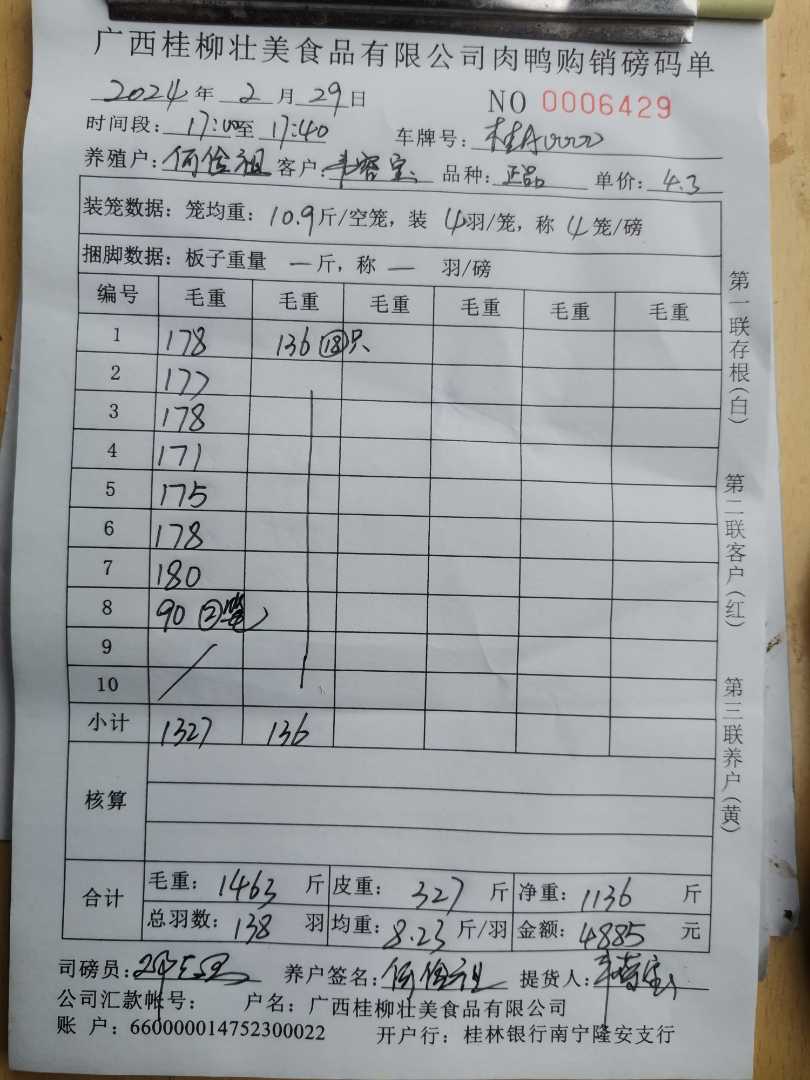 广西桂柳壮美食品有限公司肉鸭购销磅码单
2024年 2月29日 NO 0006429
时间段：17:00至17:40 车牌号：桂A0000
养殖户：何俭祖 客户： 品种：正品 单价：4.3
装笼数据：笼均重：10.9斤/空笼，装 4羽/笼，称 4笼/磅
捆脚数据：板子重量 一斤，称 一 羽/磅
编号 毛重 毛重 毛重 毛重 毛重 毛重
1 178 136 18只
2 177
3 178
4 171
5 175
6 178
7 180
8 90 ②笼
9
10
小计 1327 136
核算
合计 毛重：1463斤 皮重：327斤 净重：1136斤
总羽数：138羽 均重：8.23斤/羽 金额：4885元
司磅员： 养户签名：何俭祖 提货人：
公司汇款帐号： 户名：广西桂柳壮美食品有限公司
账 户：660000014752300022 开户行：桂林银行南宁隆安支行
第一联存根(白)
第二联客户(红)
第三联养户(黄)